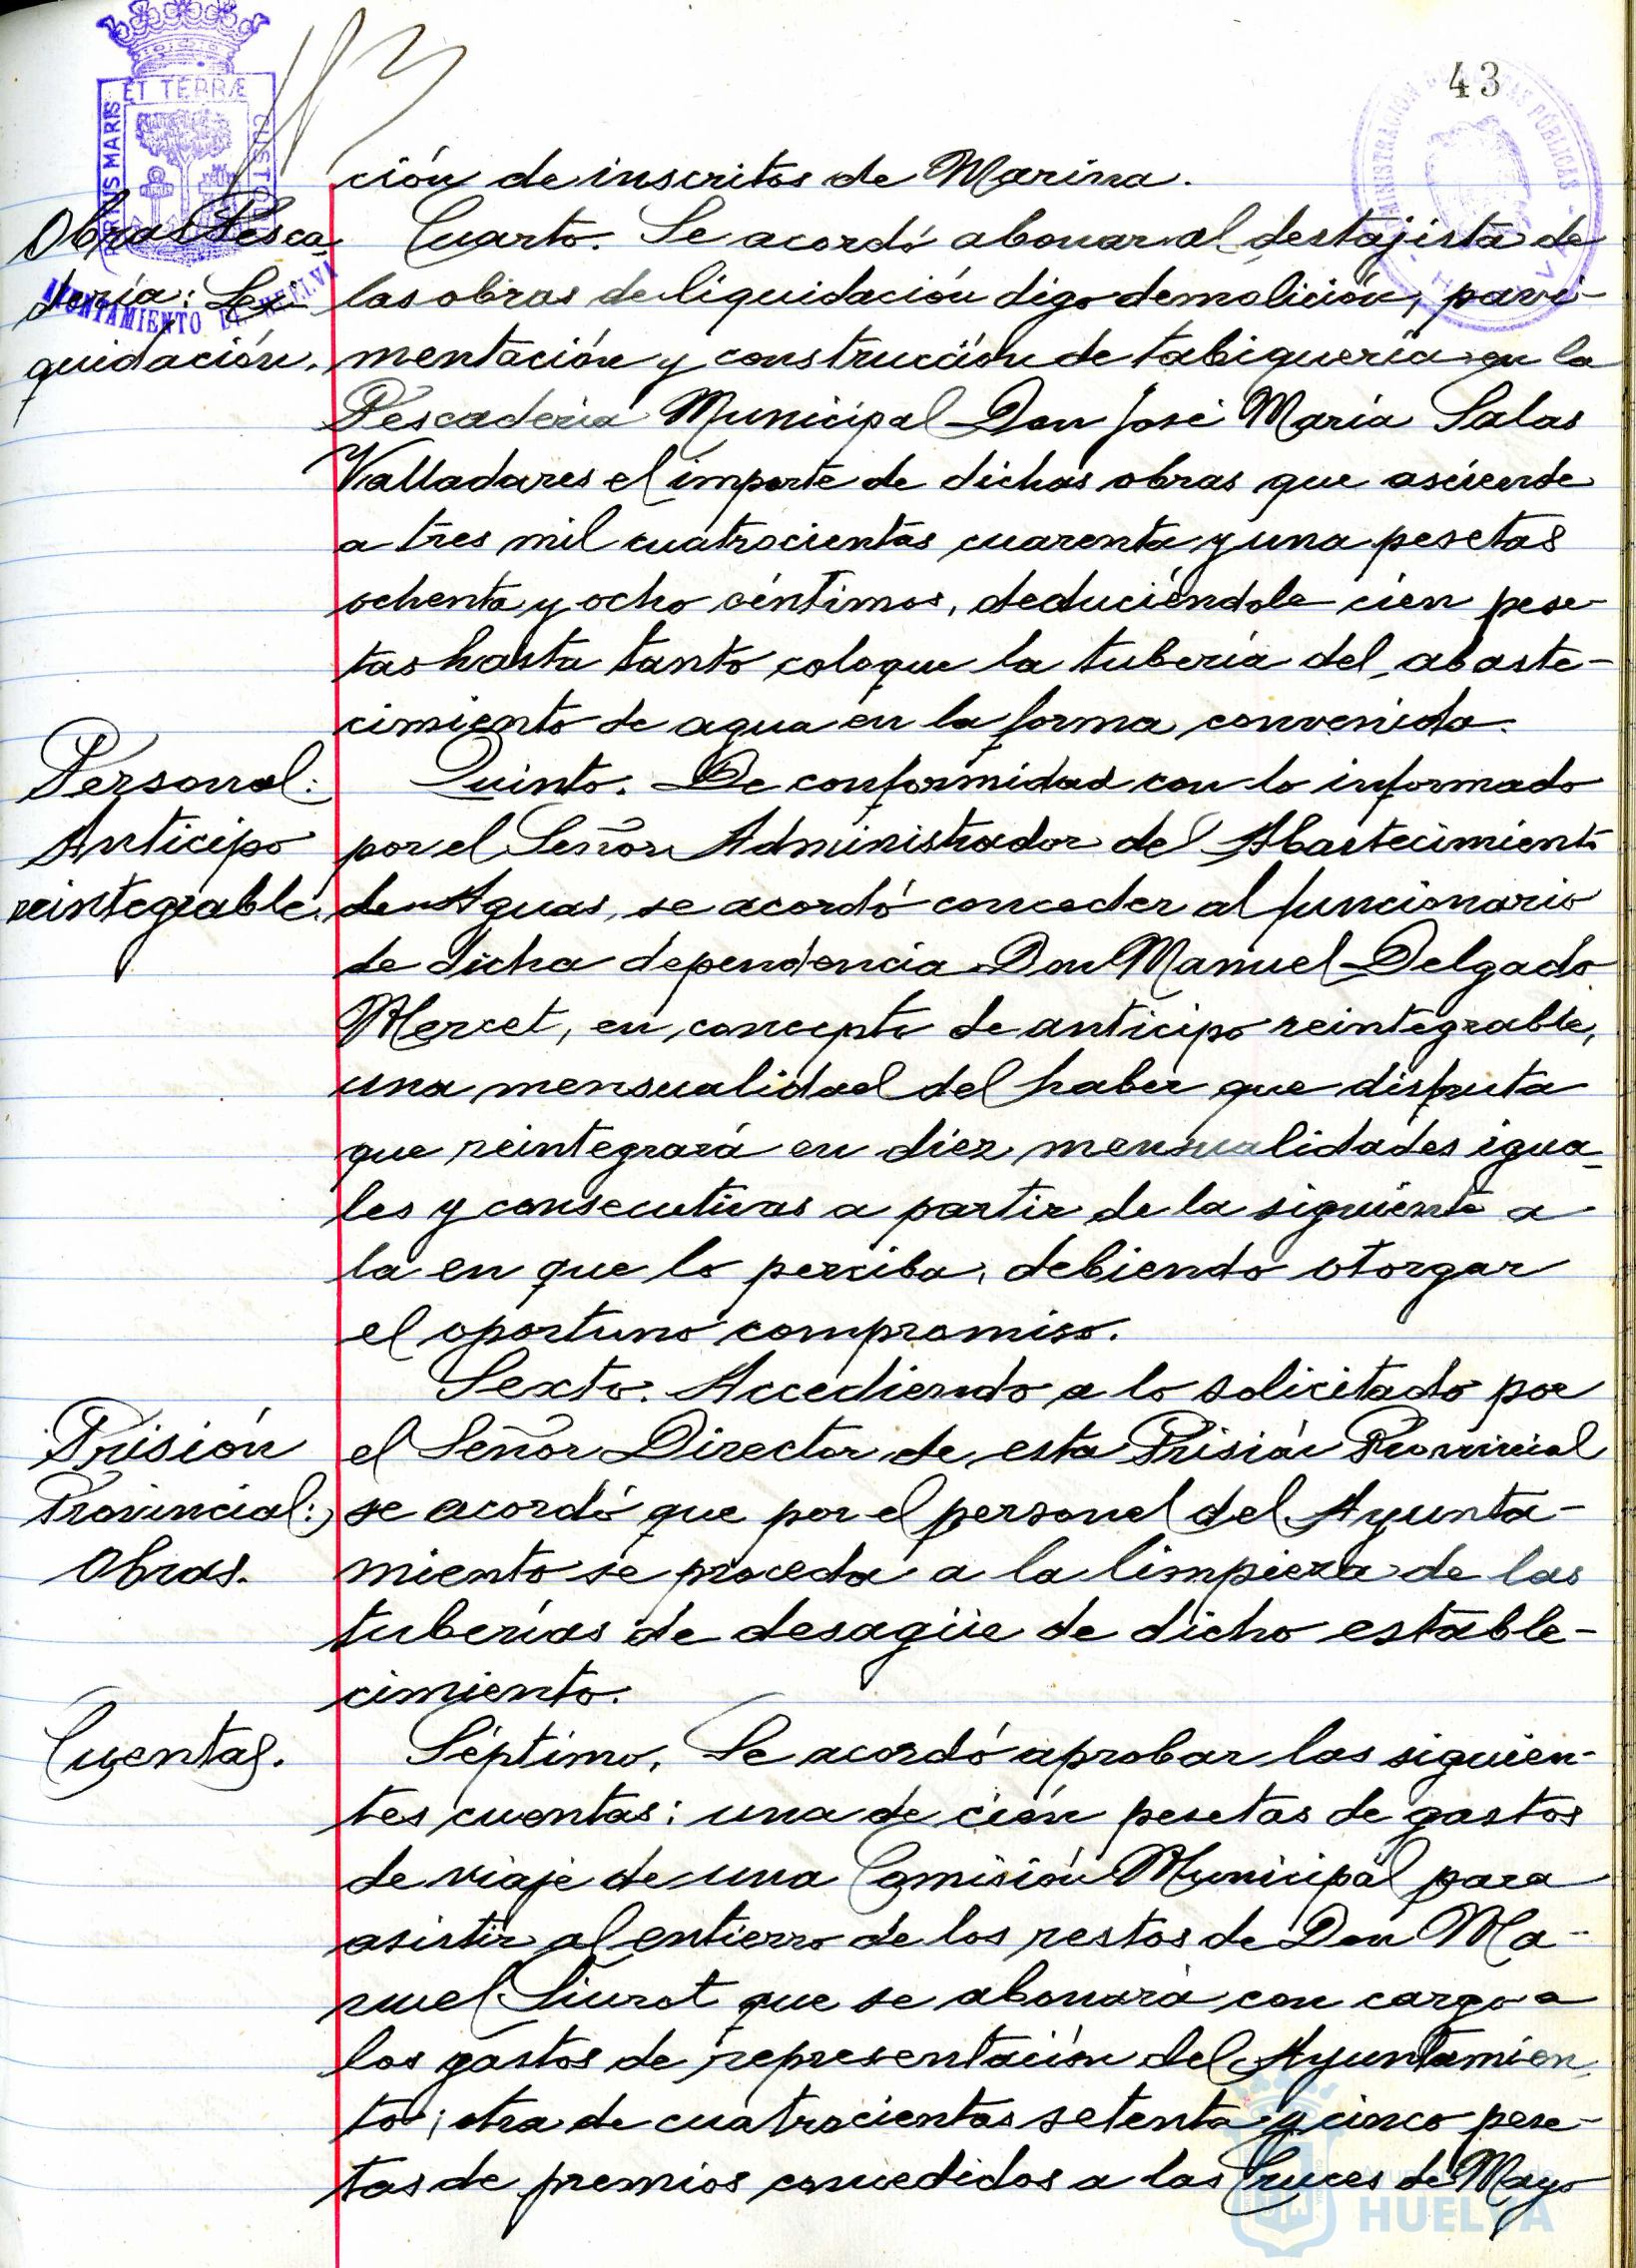 43
PORTUS MARIS ET TERRÆ CUSTODIA
AYUNTAMIENTO DE HUELVA
ción de inscritos de Marina.
Obras Pesca
dería: Li-
quidación.
Cuarto. Se acordó abonar al destajista de
las obras de liquidación digo demolición, pavi-
mentación y construcción de tabiquería en la
Pescadería Municipal Don José María Salas
Valladares el importe de dichas obras que asciende
a tres mil cuatrocientas cuarenta y una pesetas
ochenta y ocho céntimos, deduciéndole cien pese-
tas hasta tanto coloque la tubería del abaste-
cimiento de agua en la forma convenida.
Personal:
Anticipo
reintegrable.
Quinto. De conformidad con lo informado
por el Señor Administrador del Abastecimiento
de Aguas, se acordó conceder al funcionario
de dicha dependencia Don Manuel Delgado
Mercet, en concepto de anticipo reintegrable,
una mensualidad del haber que disfruta
que reintegrará en diez mensualidades igua-
les y consecutivas a partir de la siguiente a
la en que lo perciba, debiendo otorgar
el oportuno compromiso.
Prisión
Provincial:
Obras.
Sexto. Accediendo a lo solicitado por
el Señor Director de esta Prisión Provincial
se acordó que por el personal del Ayunta-
miento se proceda a la limpieza de las
tuberías de desagüe de dicho estable-
cimiento.
Cuentas.
Séptimo. Se acordó aprobar las siguien-
tes cuentas: una de cien pesetas de gastos
de viaje de una Comisión Municipal para
asistir al entierro de los restos de Don Ma-
nuel Siurot que se abonará con cargo a
los gastos de representación del Ayuntamien-
to; otra de cuatrocientas setenta y cinco pese-
tas de premios concedidos a las Cruces de Mayo
HUELVA